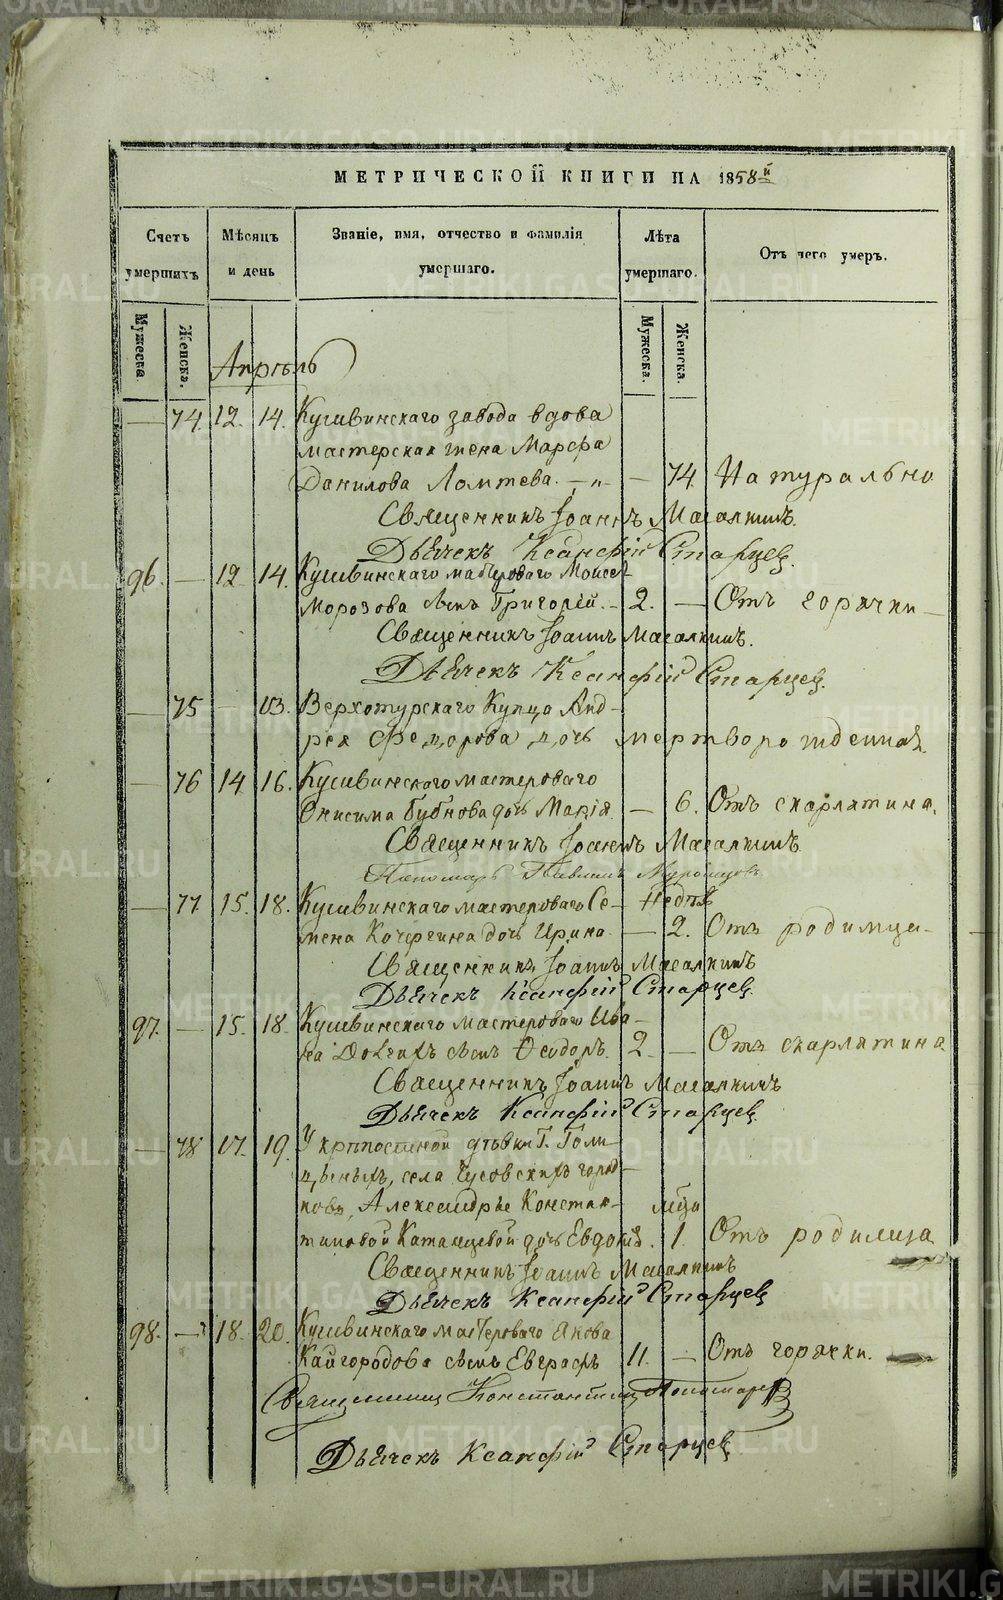 МЕТРИЧЕСКОЙ КНИГИ НА 1858й
Счетъ умершихъ
Мѣсяцъ и день
Званіе, имя, отчество и фамилія умершаго.
Лѣта умершаго.
Отъ чего умеръ.
Мужеска.
Женска.
Мужеска.
Женска.
Апрѣль
— 74. 12. 14. Кушвинскаго завода вдова
мастерская жена Марфа
Данилова Ломтева. — „ — — 74 Натурально
Священникъ Іоаннъ Масалкинъ.
Дьячекъ Ксанфій Старцев.
96. — 12 14. Кушвинскаго мастероваго Моисея
Морозова сынъ Григорій. — 2. — Отъ горячки —
Священникъ Іоаннъ Масалкинъ.
Дьячекъ Ксанфій Старцев.
— 75 — 13. Верхотурскаго Купца Анд-
рея Федорова дочь мертворожденная.
— 76 14 16. Кушвинскаго мастероваго
Онисима Бубнова дочь Марія. — 6. Отъ скарлатина.
Священникъ Іоаннъ Масалкинъ
Пономарь
— 77 15. 18. Кушвинскаго мастероваго Се- недѣл
мена Кочергина дочь Ирина. — 2. Отъ родимца —
Священникъ Іоаннъ Масалкинъ
Дьячекъ Ксанфій Старцев.
97. — 15. 18. Кушвинскаго мастероваго Ива-
на Долгихъ сынъ Ѳеодоръ. 2. — Отъ скарлатина
Священникъ Іоаннъ Масалкинъ
Дьячекъ Ксанфій Старцев.
— 78 17. 19. У крѣпостной дѣвки Г. Голи-
цыныхъ, села Чусовскихъ город-
ковъ, Александры Констан- мѣц
тиновой Катанцевой дочь Евдокія. 1. Отъ родимца
Священникъ Іоаннъ Масалкинъ
Дьячекъ Ксанфій Старцев
98. — 18. 20. Кушвинскаго мастероваго Якова
Кайгородова сынъ Евграфъ 11. — Отъ горячки.
Священникъ Константинъ Пономарев
Дьячекъ Ксанфій Старцев
METRIKI.GASO-URAL.RU